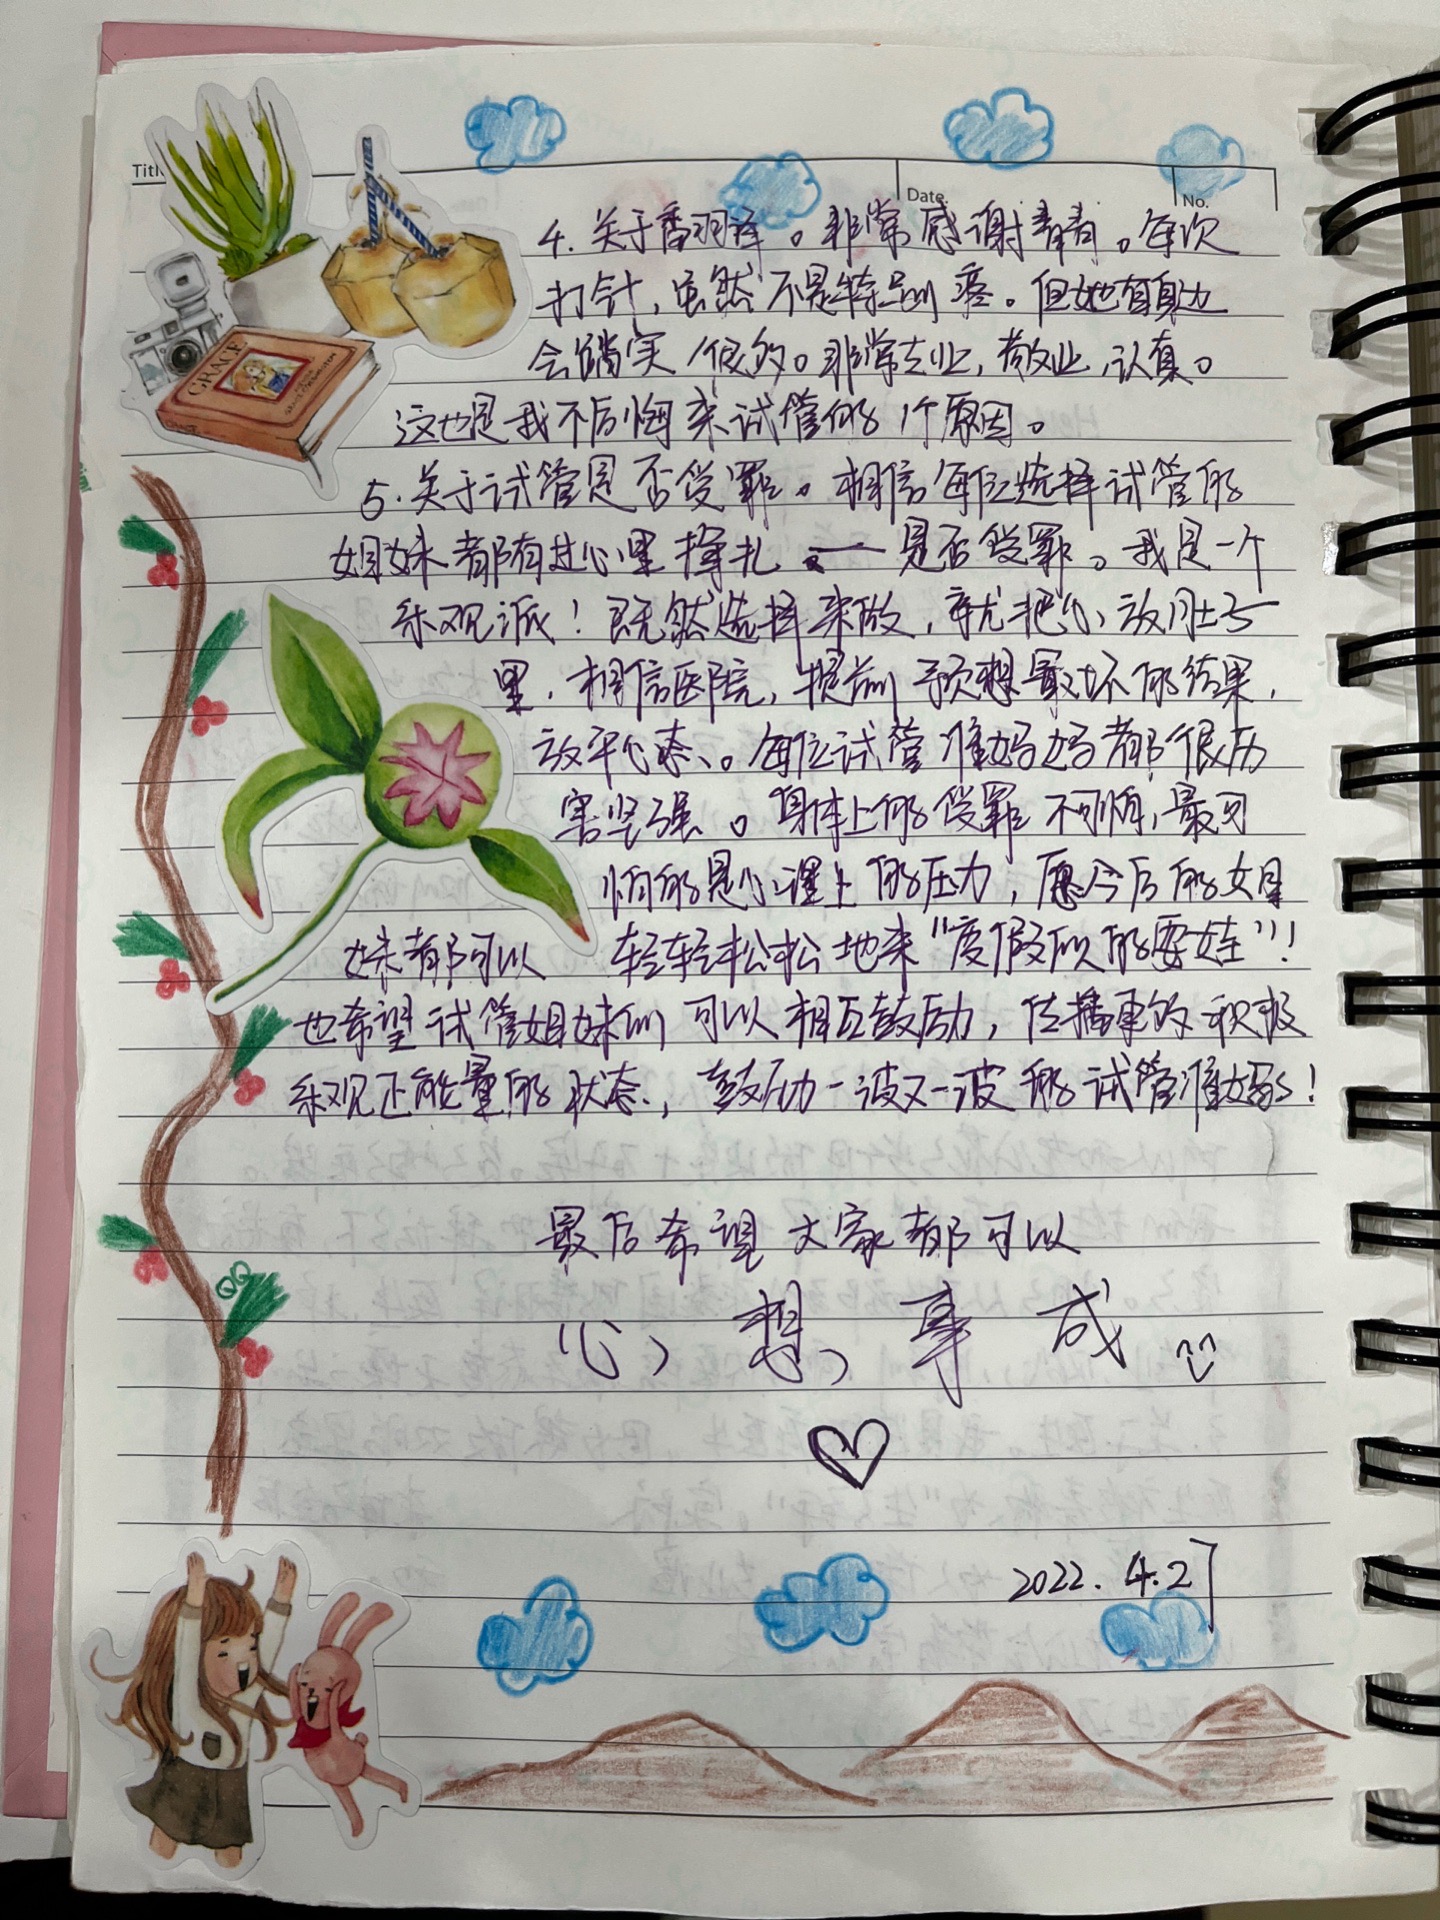 Title
Date.
No.
GRACE
4. 关于香羽泽。非常感谢青青。每次
打针,虽然不是特别疼。但她在身边
会踏实/很多的。非常专业,敬业,认真。
这也是我不后悔来试管的1个原因。
5. 关于试管是否受罪。相信每位选择试管的
姐妹都有过心里挣扎 —— 是否受罪。我是一个
乐观派!既然选择来做,就把心放肚子
里,相信医院,提前预想最坏的结果,
放平心态。每位试管准妈妈都很厉
害坚强。身体上的受罪不可怕,最可
怕的是心理上的压力,愿今后的姐
妹都可以 轻轻松松地来“度假似的要娃”!
也希望试管姐妹们可以相互鼓励,传播更的积极
乐观正能量的状态,鼓励一波又一波的试管准妈!
最后希望大家都可以
心想事成
2022.4.27